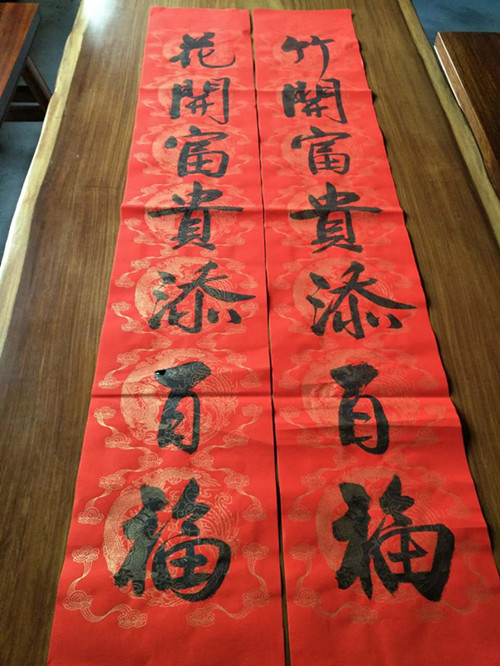 竹開富貴添百福
花開富貴添百福